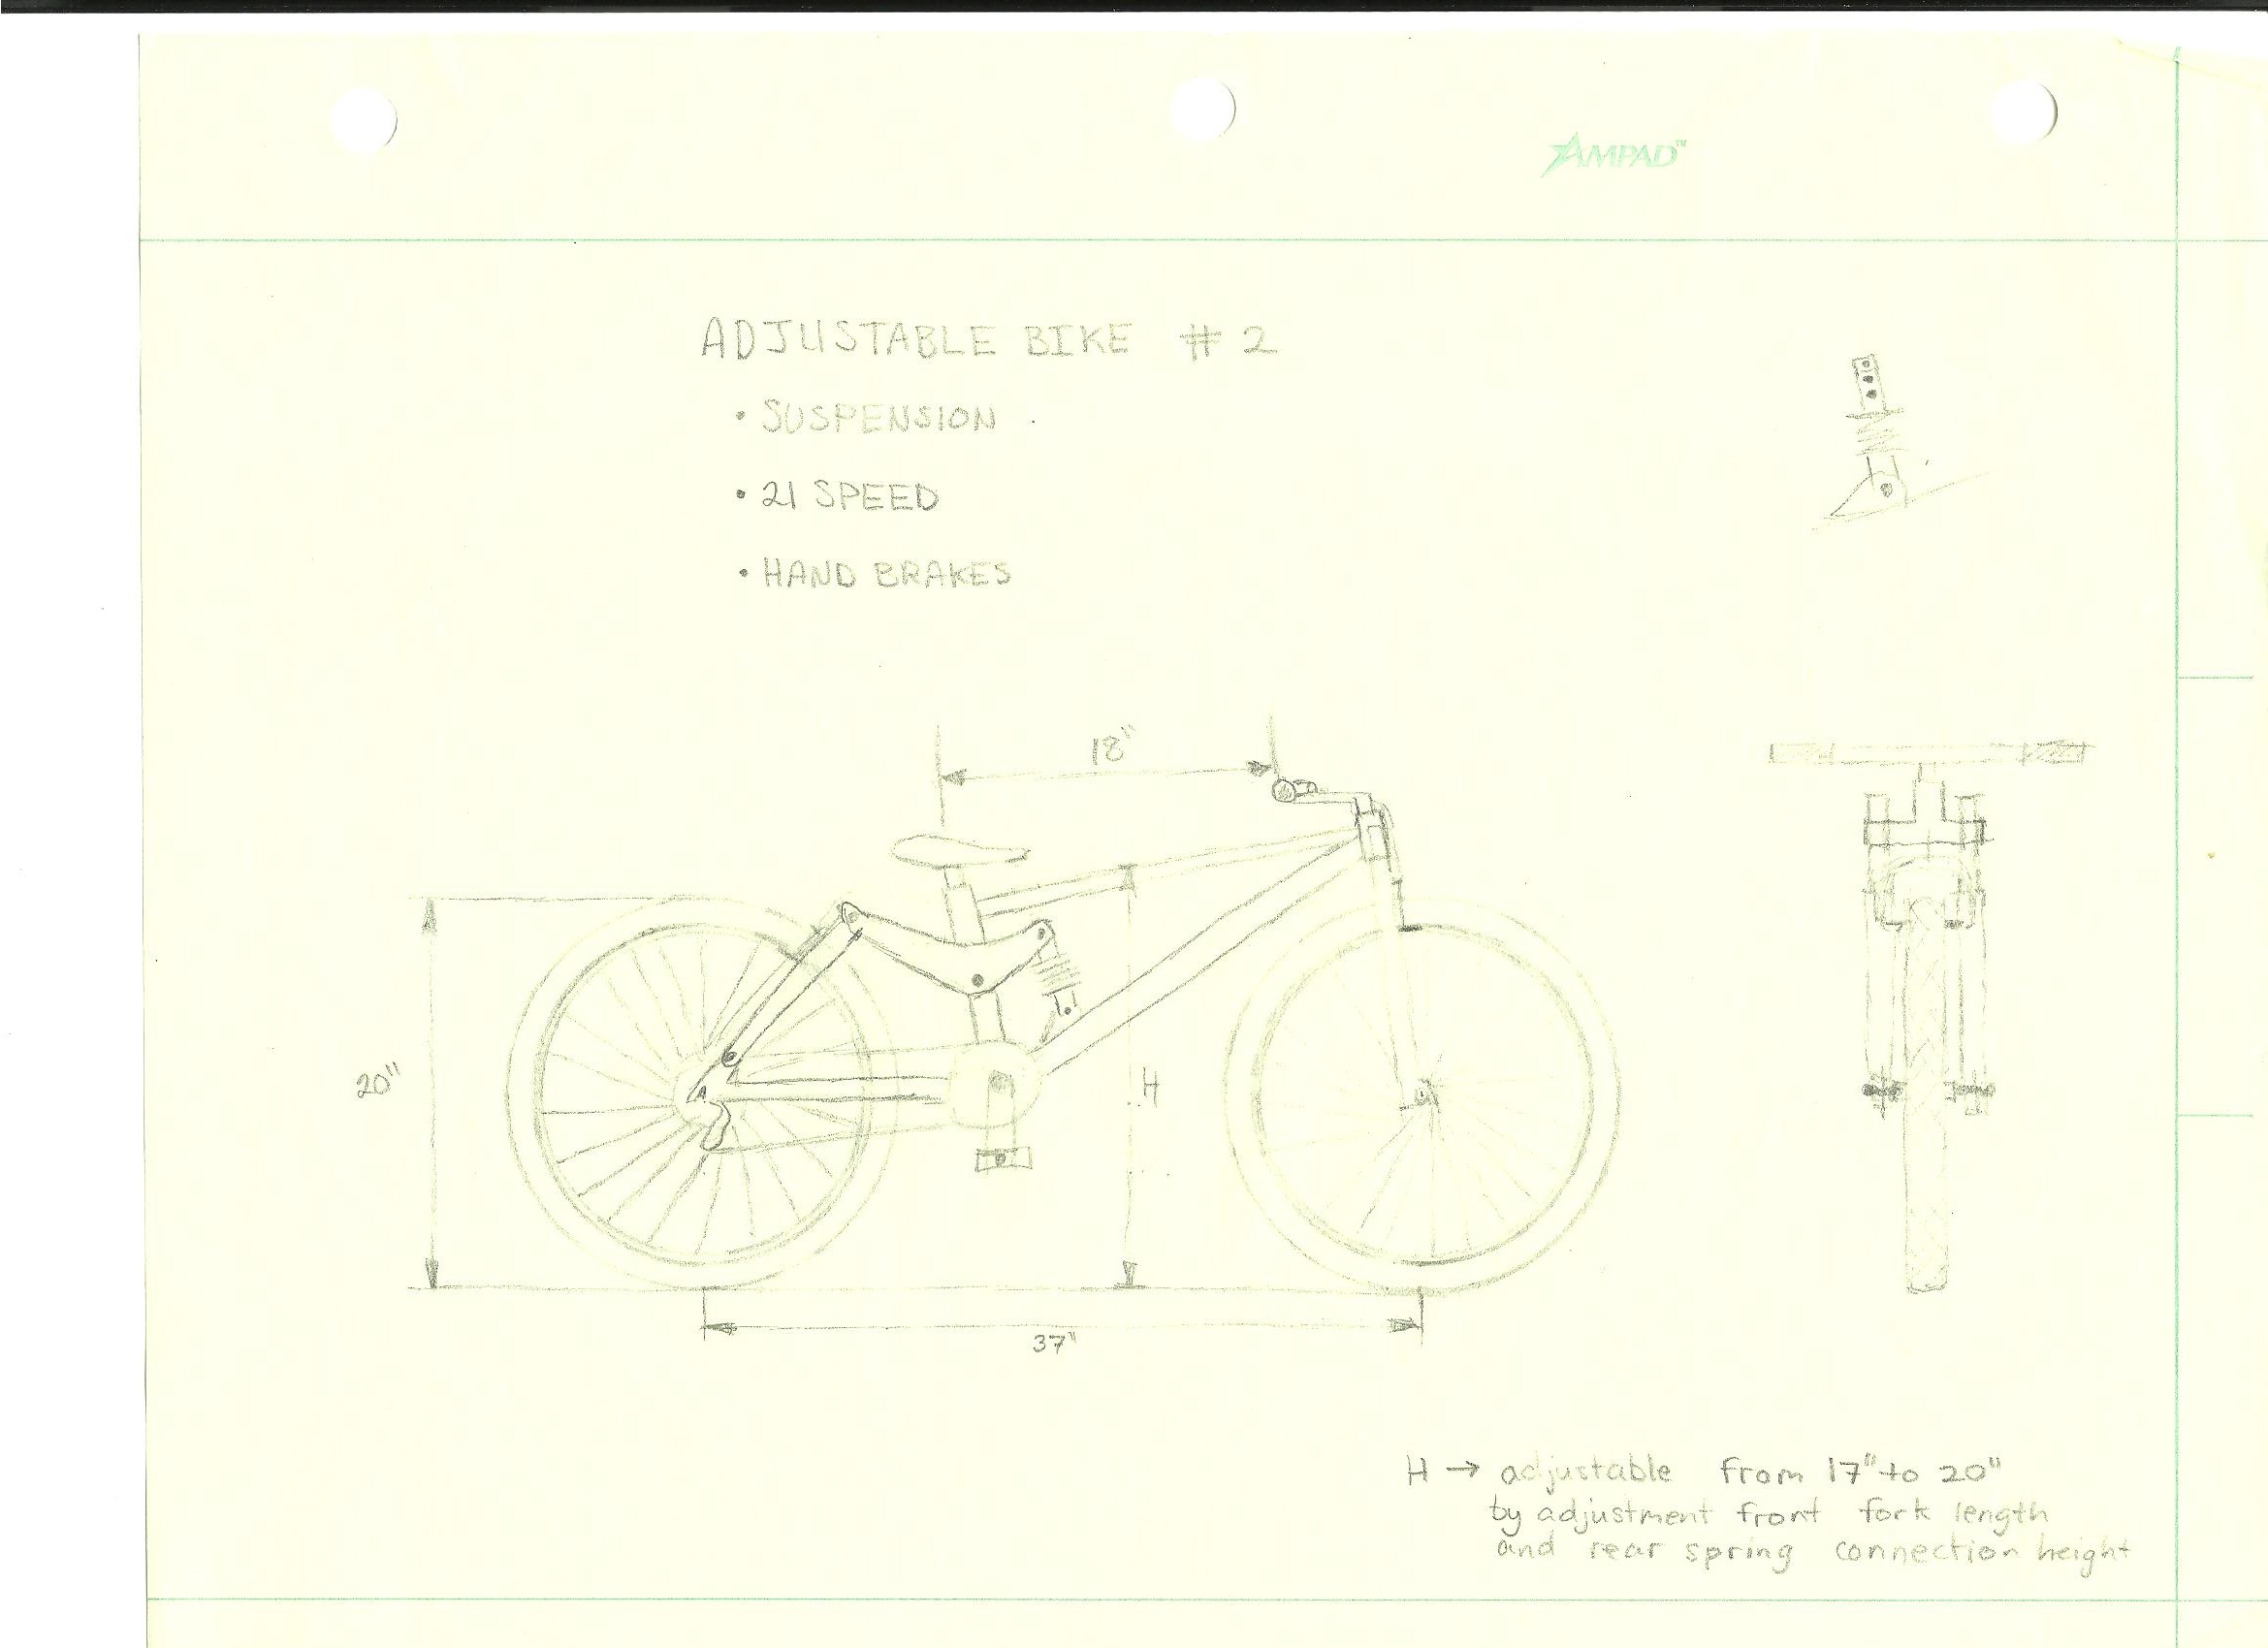 AMPAD™
ADJUSTABLE BIKE # 2
• SUSPENSION
• 21 SPEED
• HAND BRAKES
18"
20"
H
37"
H → adjustable from 17" to 20"
by adjustment front fork length
and rear spring connection height